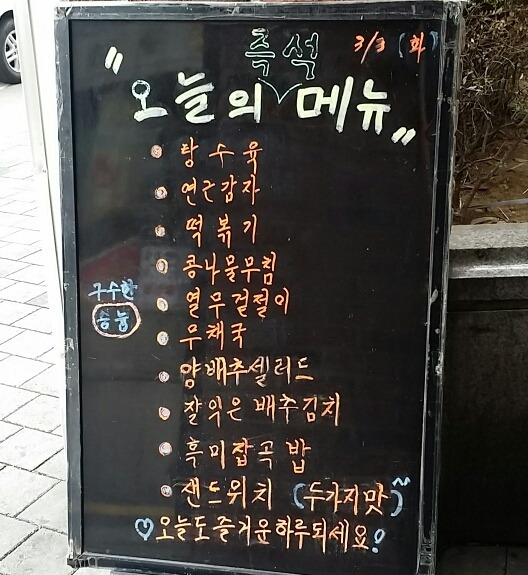 3/3 (화)
즉석
"오늘의 ∨ 메뉴"
탕수육
연근감자
떡볶기
콩나물무침
구수한
숭늉
열무겉절이
무채국
양배추셀러드
잘익은 배추김치
흑미잡곡밥
샌드위치 (두가지맛)~
♡오늘도즐거운하루되세요!